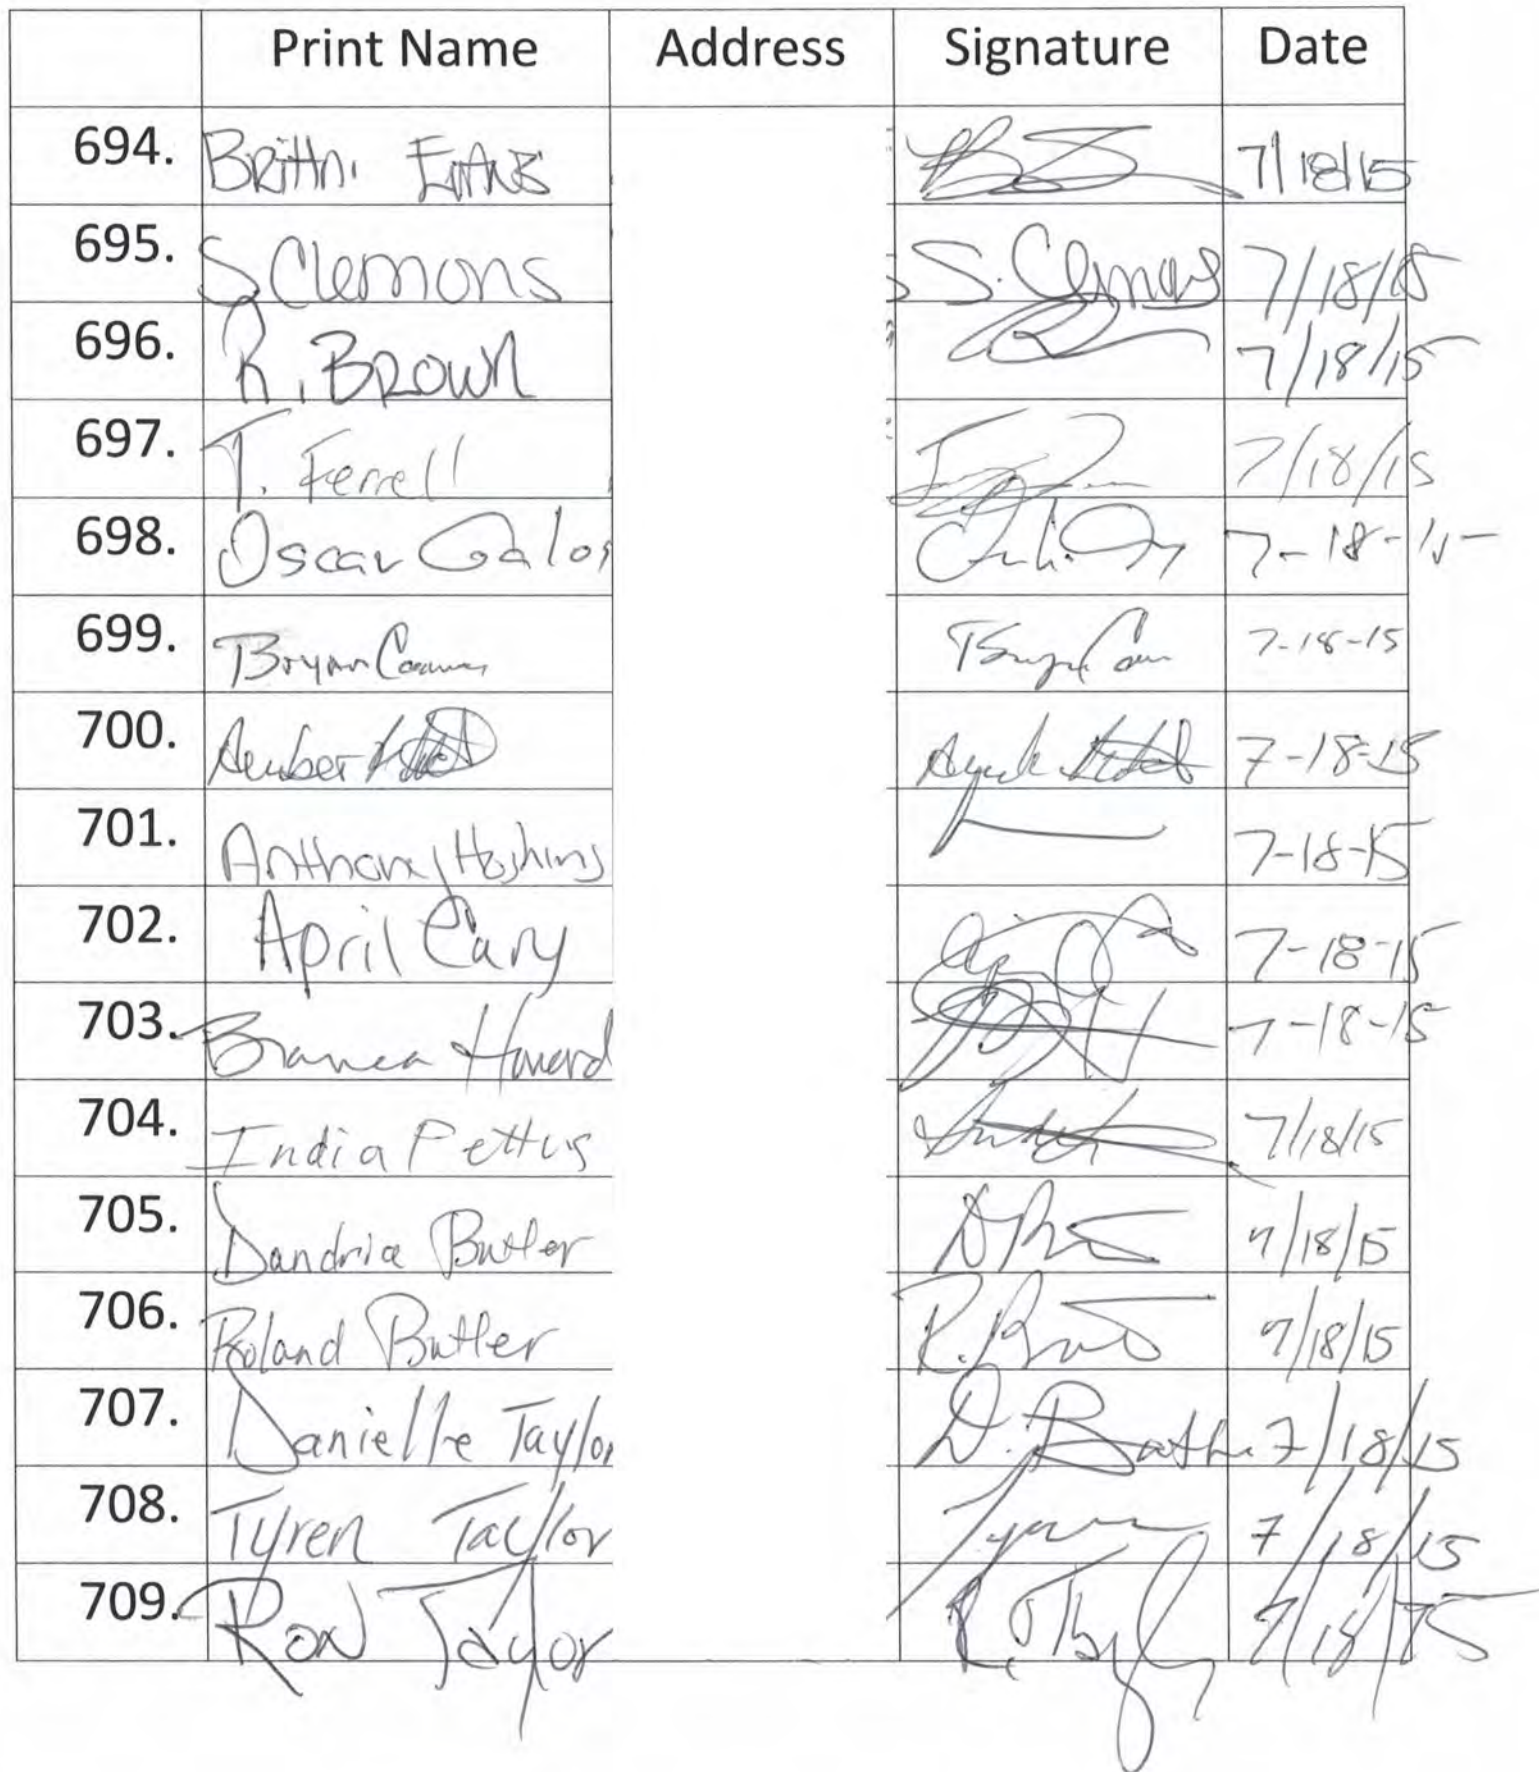 Print Name Address Signature Date
694. Britni Evans 7/18/15
695. S. Clemons S. Clemons 7/18/15
696. R. BROWN 7/18/15
697. T. Ferrell 7/18/15
698. Oscar Galo 7-18-15
699. Bryan 7-18-15
700. Amber 7-18-15
701. Anthony Hoskins 7-18-15
702. April Cary 7-18-15
703. Howard 7-18-15
704. India Pettus 7/18/15
705. Dandria Butler 7/18/15
706. Roland Butler 7/18/15
707. Danielle Taylor D. 7/18/15
708. Tyren Taylor 7/18/15
709. Ron Taylor R. Taylor 7/18/15